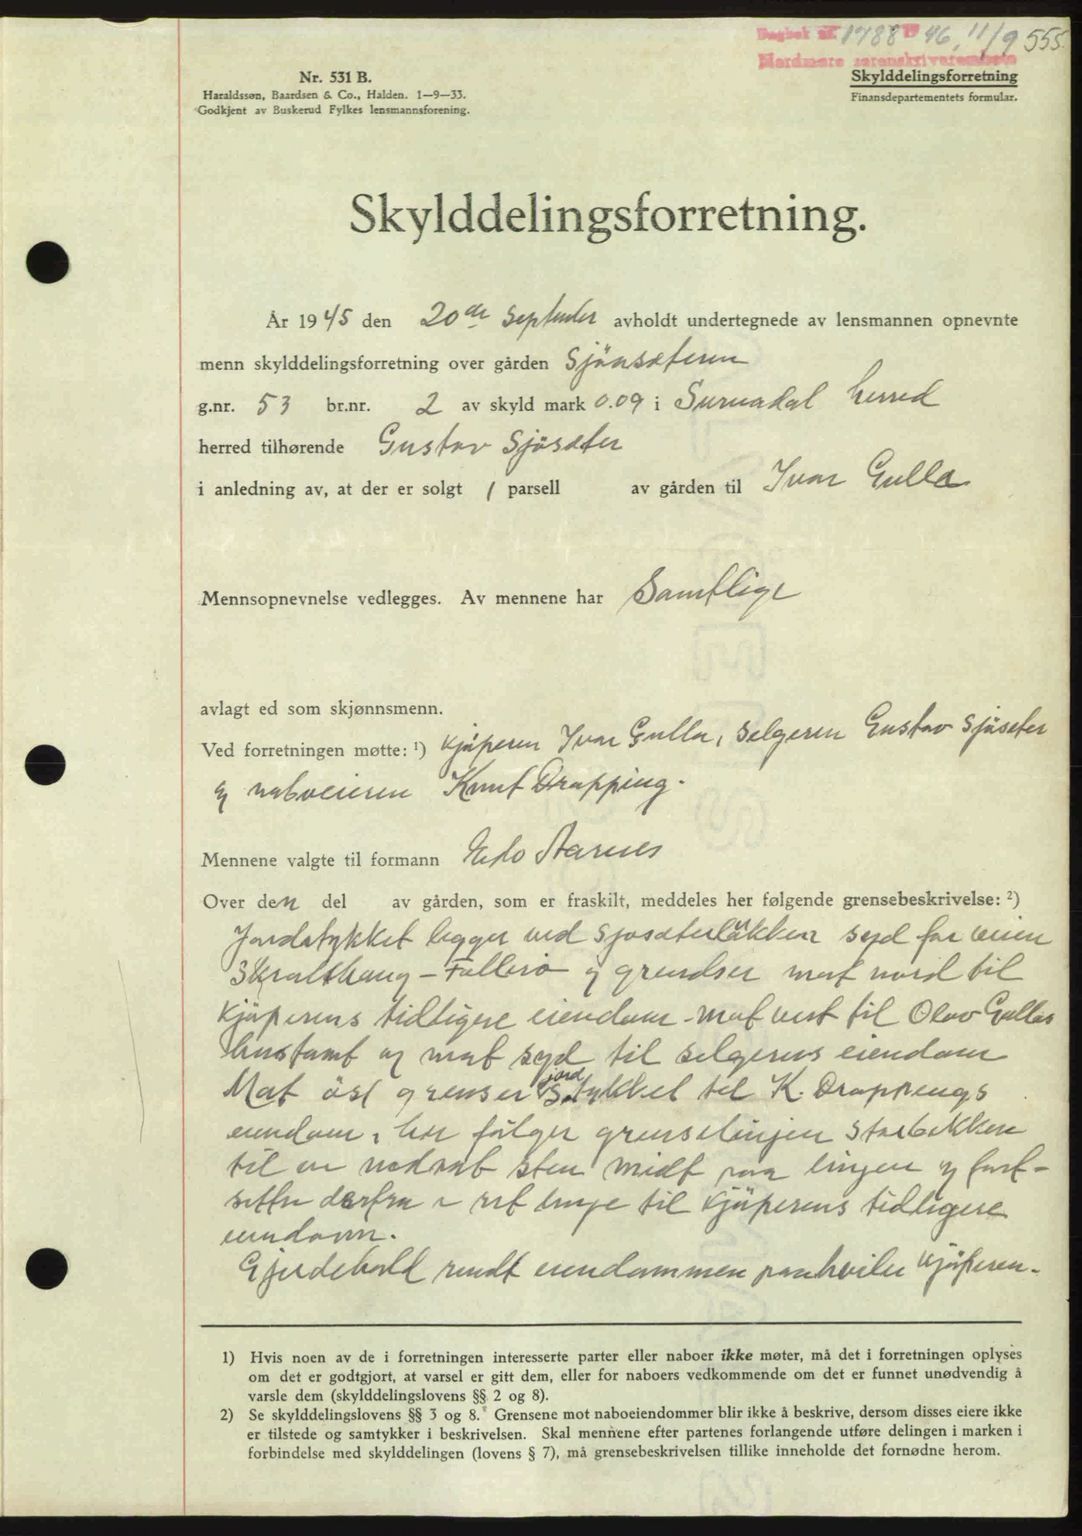 Dagbok nr. 1788 19 46, 11/9 555.
Nordmøre sorenskriverembete
Nr. 531 B.
Haraldsson, Baardsen & Co., Halden. 1—9—33.
Godkjent av Buskerud Fylkes lensmannsforening.
Skylddelingsforretning
Finansdepartementets formular.
Skylddelingsforretning.
År 1945 den 20de September avholdt undertegnede av lensmannen opnevnte
menn skylddelingsforretning over gården Sjösæteren
g.nr. 53 br.nr. 2 av skyld mark 0.09 i Surnadal herred
herred tilhørende Gustav Sjösæter
i anledning av, at der er solgt 1 parsell av gården til Ivar Gulla
Mennsopnevnelse vedlegges. Av mennene har Samtlige
avlagt ed som skjønnsmenn.
Ved forretningen møtte: ¹) kjöperen Ivar Gulla, selgeren Gustav Sjöseter
og naboeieren Knut Drøpping.
Mennene valgte til formann Edo Aarnes
Over den del av gården, som er fraskilt, meddeles her følgende grensebeskrivelse: ²)
Jordstykket ligger ved Sjosæterløkken syd for veien
Skralthaug - Fallerø og grendser mot nord til
kjöperens tidligere eiendom - mot vest til Olav Gullas
og mot syd til selgerens eiendom
Mot öst grenser jordstykket til K. Drøppings
eiendom, her fölger grenselinjen Storbekken
til en nedsat sten midt paa linjen og fort-
setter derfra i ret linje til kjöperens tidligere
eiendom.
Gjerdehold rundt eiendommen paahviler kjöperen.
1) Hvis noen av de i forretningen interesserte parter eller naboer ikke møter, må det i forretningen oplyses
om det er godtgjort, at varsel er gitt dem, eller for naboers vedkommende om det er funnet unødvendig å
varsle dem (skylddelingslovens §§ 2 og 8).
2) Se skylddelingslovens §§ 3 og 8. Grensene mot naboeiendommer blir ikke å beskrive, dersom disses eiere ikke
er tilstede og samtykker i beskrivelsen. Skal mennene efter partenes forlangende utføre delingen i marken i
forbindelse med skylddelingen (lovens § 7), må grensebeskrivelsen tillike inneholde det fornødne herom.